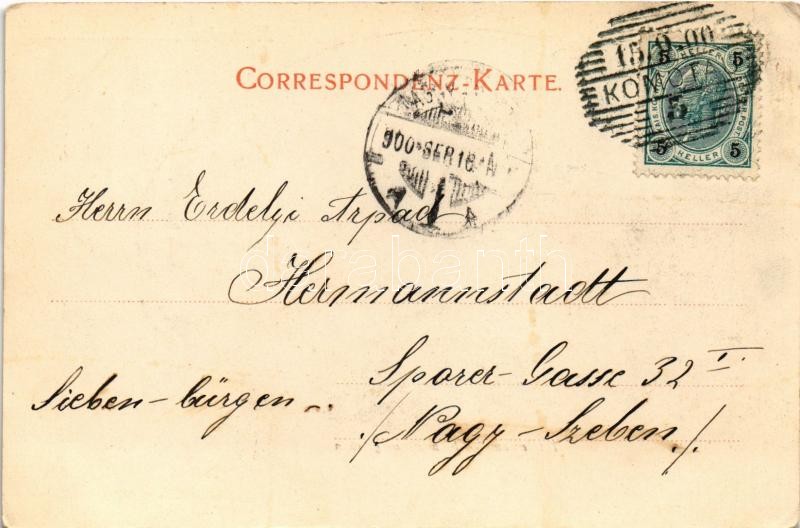 CORRESPONDENZ-KARTE.
15.9.00
KOMOTA
5
5 HELLER 5
5 HELLER 5
900 SEP 16 N
Herrn Erdelyi Arpad
Hermannstadt
Sporer-Gasse 32 I.
Sieben-bürgen..
/Nagy-Szeben/.
darabanth